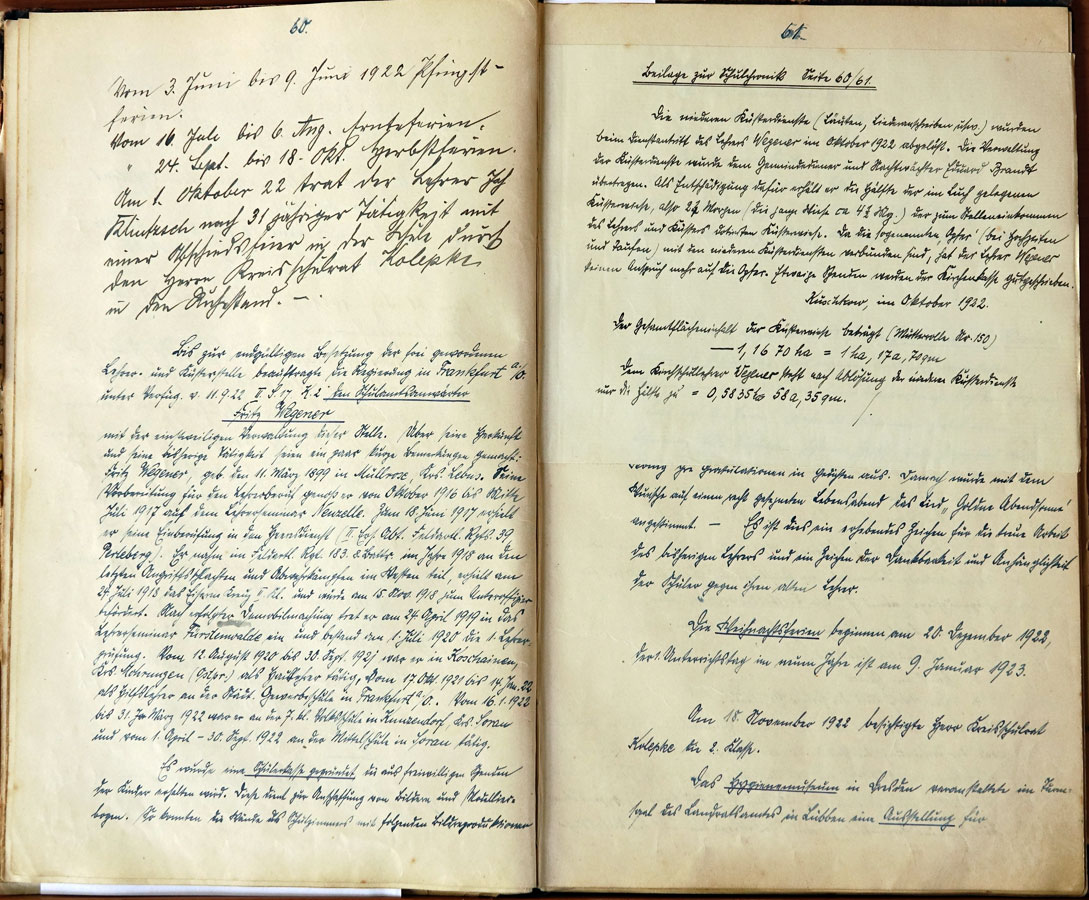 60.
Vom 3. Juni bis 9. Juni 1922 Pfingst-
ferien.
Vom 16. Juli bis 6. Aug. Ernteferien.
" 24. Sept. bis 18. Okt. Herbstferien.
Am 1. Oktober 22 trat der Lehrer Joh
Klintzsch nach 31 jähriger Tätigkeit mit
einer Abschiedsfeier in der Schule durch
den Herrn Kreisschulrat Kolepke
in den Ruhestand. —
Bis zur endgültigen Besetzung der frei gewordenen
Lehrer- und Küsterstelle beauftragte die Regierung in Frankfurt a/O.
unter Verfüg. v. 11.9.22 II den Schulamtsanwärter
Fritz Wegener
mit der einstweiligen Verwaltung dieser Stelle. Über seine Herkunft
und seine bisherige Tätigkeit seien ein paar kurze Bemerkungen gemacht:
Fritz Wegener, geb. den 11. März 1899 in Müllrose Krs. Lebus. Seine
Vorbereitung für den Lehrerberuf genoß er von Oktober 1916 bis Mitte
Juli 1917 auf dem Lehrerseminar Neuzelle. Zum 18. Juni 1917 erhielt
er seine Einberufung in den Heeresdienst (II. Ers. Abt. Feldartl. Rgts. 39,
Perleberg). Er nahm im Feldartl. Rgt. 183. 8. Battr. im Jahre 1918 an den
letzten Angriffsschlachten und Abwehrkämpfen im Westen teil, erhielt am
24. Juli 1918 das Eiserne Kreuz II. Kl. und wurde am 15. Nov. 1918 zum Unteroffizier
befördert. Nach erfolgter Demobilmachung trat er am 24. April 1919 in das
Lehrerseminar Fürstenwalde ein und bestand am 1. Juli 1920 die 1. Lehrer-
prüfung. Vom 12. August 1920 bis 30. Sept. 1921 war er in Koschainen,
Krs. Mohrungen (Ostpr.) als Hauslehrer tätig, vom 17. Okt. 1921 bis 14. Jan. 22
als Hilfslehrer an der Städt. Gewerbeschule in Frankfurt a/O. Vom 16.1.1922
bis 31. März 1922 war er an der 7. kl. Volksschule in Kunzendorf Krs. Sorau
und vom 1. April - 30. Sept. 1922 an der Mittelschule in Sorau tätig.
Es wurde eine Schülerkasse gegründet die aus freiwilligen Spenden
der Kinder erhalten wird. Diese dient zur Anschaffung von Bildern und Modellier-
bogen. So konnten die Wände des Schulzimmers mit folgenden Bildreproduktionen
61.
Beilage zur Schulchronik Seite 60/61.
Die niederen Küsterdienste (Läuten, Liederanschreiben, usw.) wurden
beim Dienstantritt des Lehrers Wegener im Oktober 1922 abgelöst. Die Verwaltung
der Küsterdienste wurde dem Gemeindediener und Nachtwächter Eduard Brandt
übertragen. Als Entschädigung dafür erhält er die Hälfte der im Luch gelegenen
Küsterwiese, also 2¼ Morgen (die ganze Wiese ca 4½ Mg.) der zum Stelleneinkommen
des Lehrers und Küsters dotierten Küsterwiese. Da die sogenannten Opfer (bei Hochzeiten
und Taufen) mit den niederen Küsterdiensten verbunden sind, hat der Lehrer Wegener
keinen Anspruch mehr auf die Opfer. Etwaige Spenden werden der Kirchenkasse gutgeschrieben.
im Oktober 1922.
Der Gesamtflächeninhalt der Küsterwiese beträgt (Mutterrolle Nr. 150)
— 1,1670 ha = 1 ha, 17a, 70 qm
Dem Kirchschullehrer Wegener steht nach Ablösung der niederen Küsterdienste
nur die Hälfte zu = 0,5835 ha 58 a, 35 qm.
ihre Gratulationen in Gedichten aus. Danach wurde mit dem
Wunsche auf einen recht gesegneten Lebensabend das Lied „Goldne Abendsonne"
angestimmt. — Es ist dies ein erhebendes Zeichen für die treue Arbeit
des bisherigen Lehrers und ein Zeichen der Dankbarkeit und Anhänglichkeit
der Schüler gegen ihren alten Lehrer.
Die Weihnachtsferien beginnen am 20. Dezember 1922,
der 1. Unterrichtstag im neuen Jahre ist am 9. Januar 1923.
Am 18. November 1922 besichtigte Herr Kreisschulrat
Kolepke die 2. Klasse.
Das Hygienemuseum in Dresden veranstaltete im Turn-
saal des Landratsamtes in Lübben eine Ausstellung für